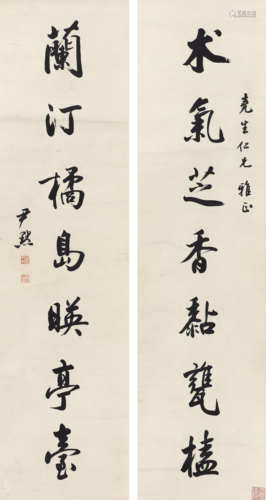 术氣芝香黏甕榼
堯生仁兄 雅正
蘭汀橘島暎亭臺
尹默